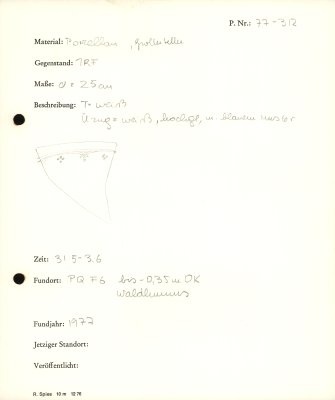 P. Nr.: 77-312
Material: Porzellan, großer Teller
Gegenstand: TRF
Maße: ∅ = 25 cm
Beschreibung: T= weiß
Überzug= weiß, m. blauem Muster
Zeit: 31.5-3.6
Fundort: PQ F6 bis -0,35 m OK
Waldhumus
Fundjahr: 1977
Jetziger Standort:
Veröffentlicht:
R. Spies 10 m 12 76